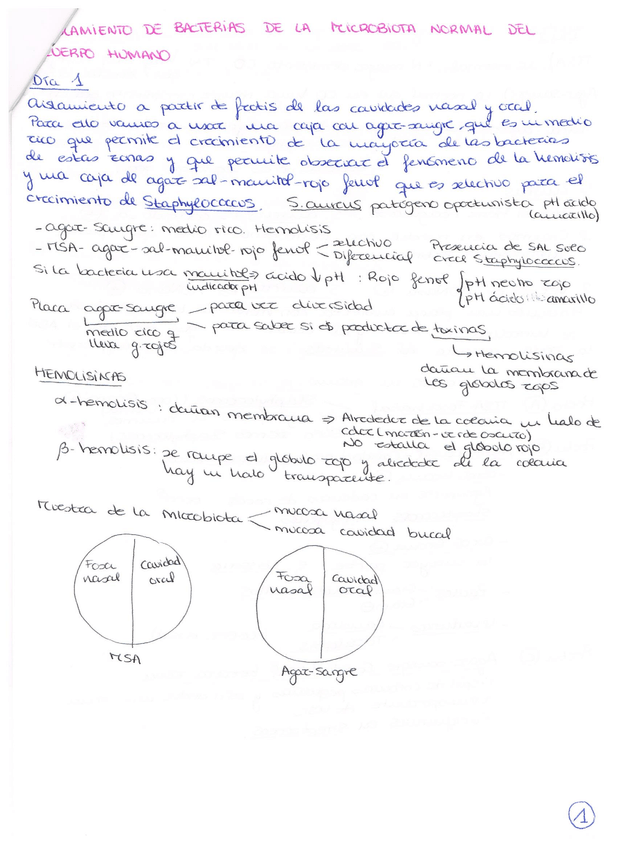 LAMIENTO DE BACTERIAS DE LA MICROBIOTA NORMAL DEL
CUERPO HUMANO
Día 1
Aislamiento a partir de frotis de las cavidades nasal y oral.
Para ello vamos a usar una caja con agar-sangre, que es un medio
rico que permite el crecimiento de la mayoría de las bacterias
de estas zonas y que permite observar el fenómeno de la hemolisis
y una caja de agar-sal-manitol-rojo fenol que es selectivo para el
crecimiento de Staphylococcus. S. aureus patógeno oportunista pH ácido
(amarillo)
- agar-Sangre: medio rico. Hemolisis
- MSA- agar-sal-manitol-rojo fenol selectivo Presencia de SAL solo
Diferencial crece Staphylococcus.
Si la bacteria usa manitol => ácido ↓ pH : Rojo fenol pH neutro rojo
indicador pH pH ácido: amarillo
Placa agar-sangre para ver diversidad
medio rico q para saber si es productor de toxinas
lleva g.rojos Hemolisinas
dañan la membrana de
los glóbulos rojos
HEMOLISINAS
α-hemolisis : dañan membrana => Alrededor de la colonia un halo de
color (marrón-verde oscuro)
NO estalla el glóbulo rojo
β-hemolisis: se rompe el glóbulo rojo y alrededor de la colonia
hay un halo transparente.
Muestra de la microbiota mucosa nasal
mucosa cavidad bucal
Fosa nasal Cavidad oral
Fosa nasal Cavidad oral
MSA
Agar-Sangre
1